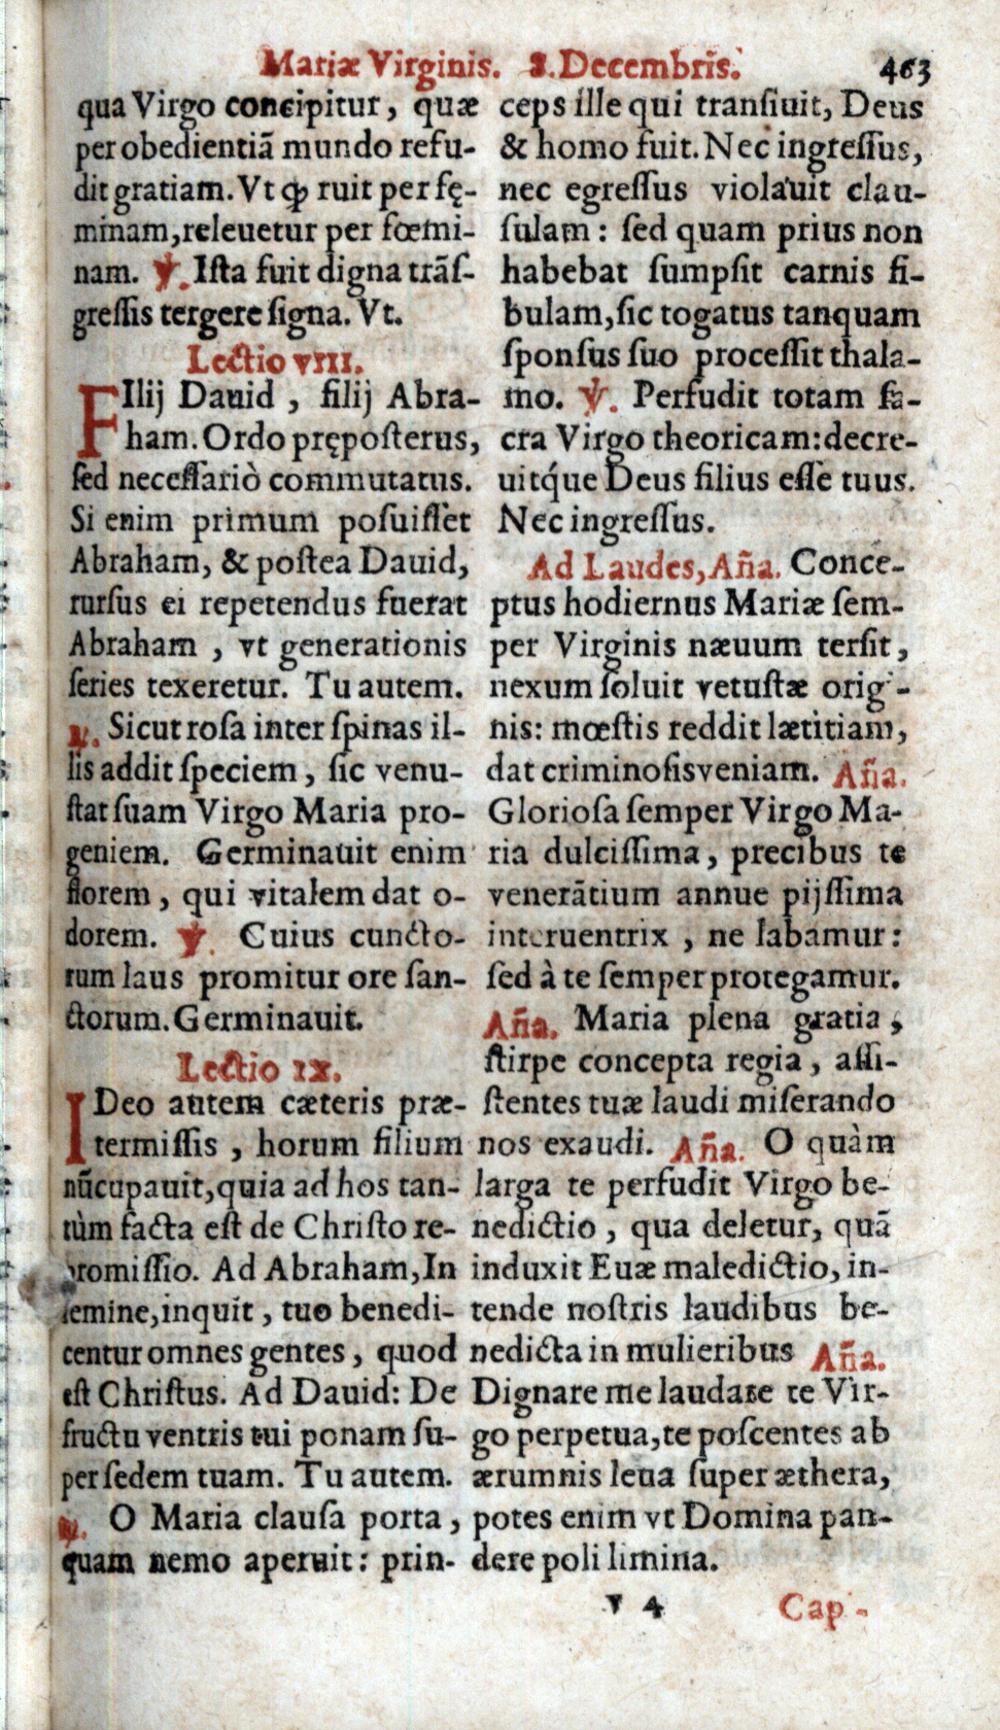 Mariæ Virginis. 8. Decembris. 463
qua Virgo concipitur, quæ
per obedientiã mundo refu-
dit gratiam. Vt ꝙ ruit per fę-
minam, releuetur per fœmi-
nam. ℣. Ista fuit digna trãs-
gressis tergere signa. Vt.
Lectio viii.
FIlij Dauid, filij Abra-
ham. Ordo pręposterus,
sed necessariò commutatus.
Si enim primum posuisset
Abraham, & postea Dauid,
rursus ei repetendus fuerat
Abraham, vt generationis
series texeretur. Tu autem.
℟. Sicut rosa inter spinas il-
lis addit speciem, sic venu-
stat suam Virgo Maria pro-
geniem. Germinauit enim
florem, qui vitalem dat o-
dorem. ℣. Cuius cuncto-
rum laus promitur ore san-
ctorum. Germinauit.
Lectio ix.
IDeo autem cæteris præ-
termissis, horum filium
nũcupauit, quia ad hos tan-
tùm facta est de Christo re-
promissio. Ad Abraham, In
semine, inquit, tuo benedi-
centur omnes gentes, quod
est Christus. Ad Dauid: De
fructu ventris tui ponam su-
per sedem tuam. Tu autem.
℟. O Maria clausa porta,
quam nemo aperuit: prin-
ceps ille qui transiuit, Deus
& homo fuit. Nec ingressus,
nec egressus violauit clau-
sulam: sed quam prius non
habebat sumpsit carnis fi-
bulam, sic togatus tanquam
sponsus suo processit thala-
mo. ℣. Perfudit totam sa-
cra Virgo theoricam: decre-
uitq́ue Deus filius esse tuus.
Nec ingressus.
Ad Laudes, Aña. Conce-
ptus hodiernus Mariæ sem-
per Virginis næuum tersit,
nexum soluit vetustæ origi-
nis: mœstis reddit lætitiam,
dat criminosis veniam. Aña.
Gloriosa semper Virgo Ma-
ria dulcissima, precibus te
venerãtium annue pijssima
interuentrix, ne labamur:
sed à te semper protegamur.
Aña. Maria plena gratia,
stirpe concepta regia, assi-
stentes tuæ laudi miserando
nos exaudi. Aña. O quàm
larga te perfudit Virgo be-
nedictio, qua deletur, quã
induxit Euæ maledictio, in-
tende nostris laudibus be-
nedicta in mulieribus Aña.
Dignare me laudare te Vir-
go perpetua, te poscentes ab
ærumnis leua super æthera,
potes enim vt Domina pan-
dere poli limina.
V 4 Cap-